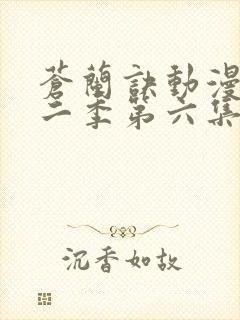 蒼蘭訣動漫
二季第六集
沉香如故